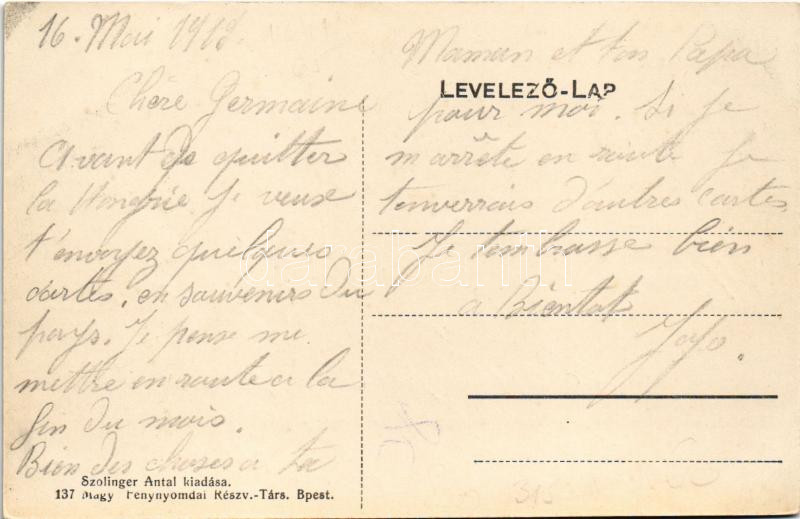 16. Mai 1918
Chère Germaine
avant de quitter
la Hongrie Je veux
t'envoyez quelques
cartes, en souvenirs du
pays. Je pense me
mettre en route a la
fin du mois.
Bien des choses a ta
Maman et ton Papa
pour moi. Si Je
m'arrête en route Je
t'enverrais d'autres cartes
Je t'embrasse bien
a Bientot
LEVELEZŐ-LAP
Szolinger Antal kiadása.
137 Magy Fenynyomdai Részv.-Társ. Bpest.
darabanth